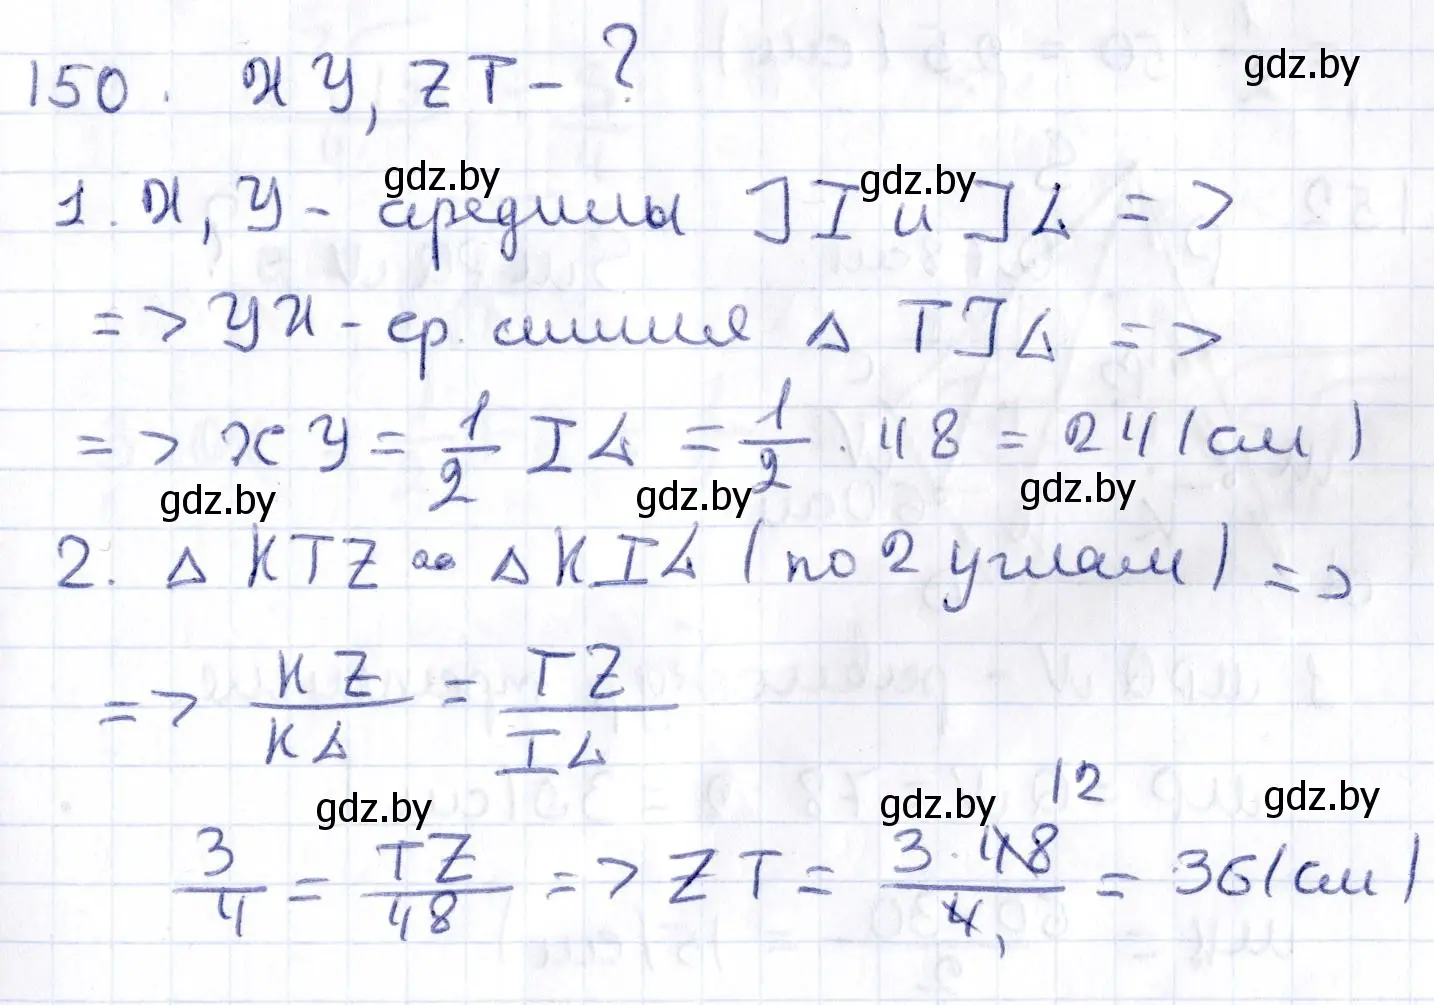 150. XY, ZT - ?
gdz.by
1. X, Y - середины JI и JL =>
gdz.by gdz.by
=> YX - ср. линия Δ TJL =>
=> XY = 1/2 IL = 1/2 · 48 = 24 (см)
gdz.by gdz.by gdz.by
2. Δ KTZ ∾ Δ KIL (по 2 углам) =>
=> KZ/KL = TZ/IL
gdz.by gdz.by gdz.by
3/4 = TZ/48 => ZT = 3 · 48 12/4 1 = 36 (см)